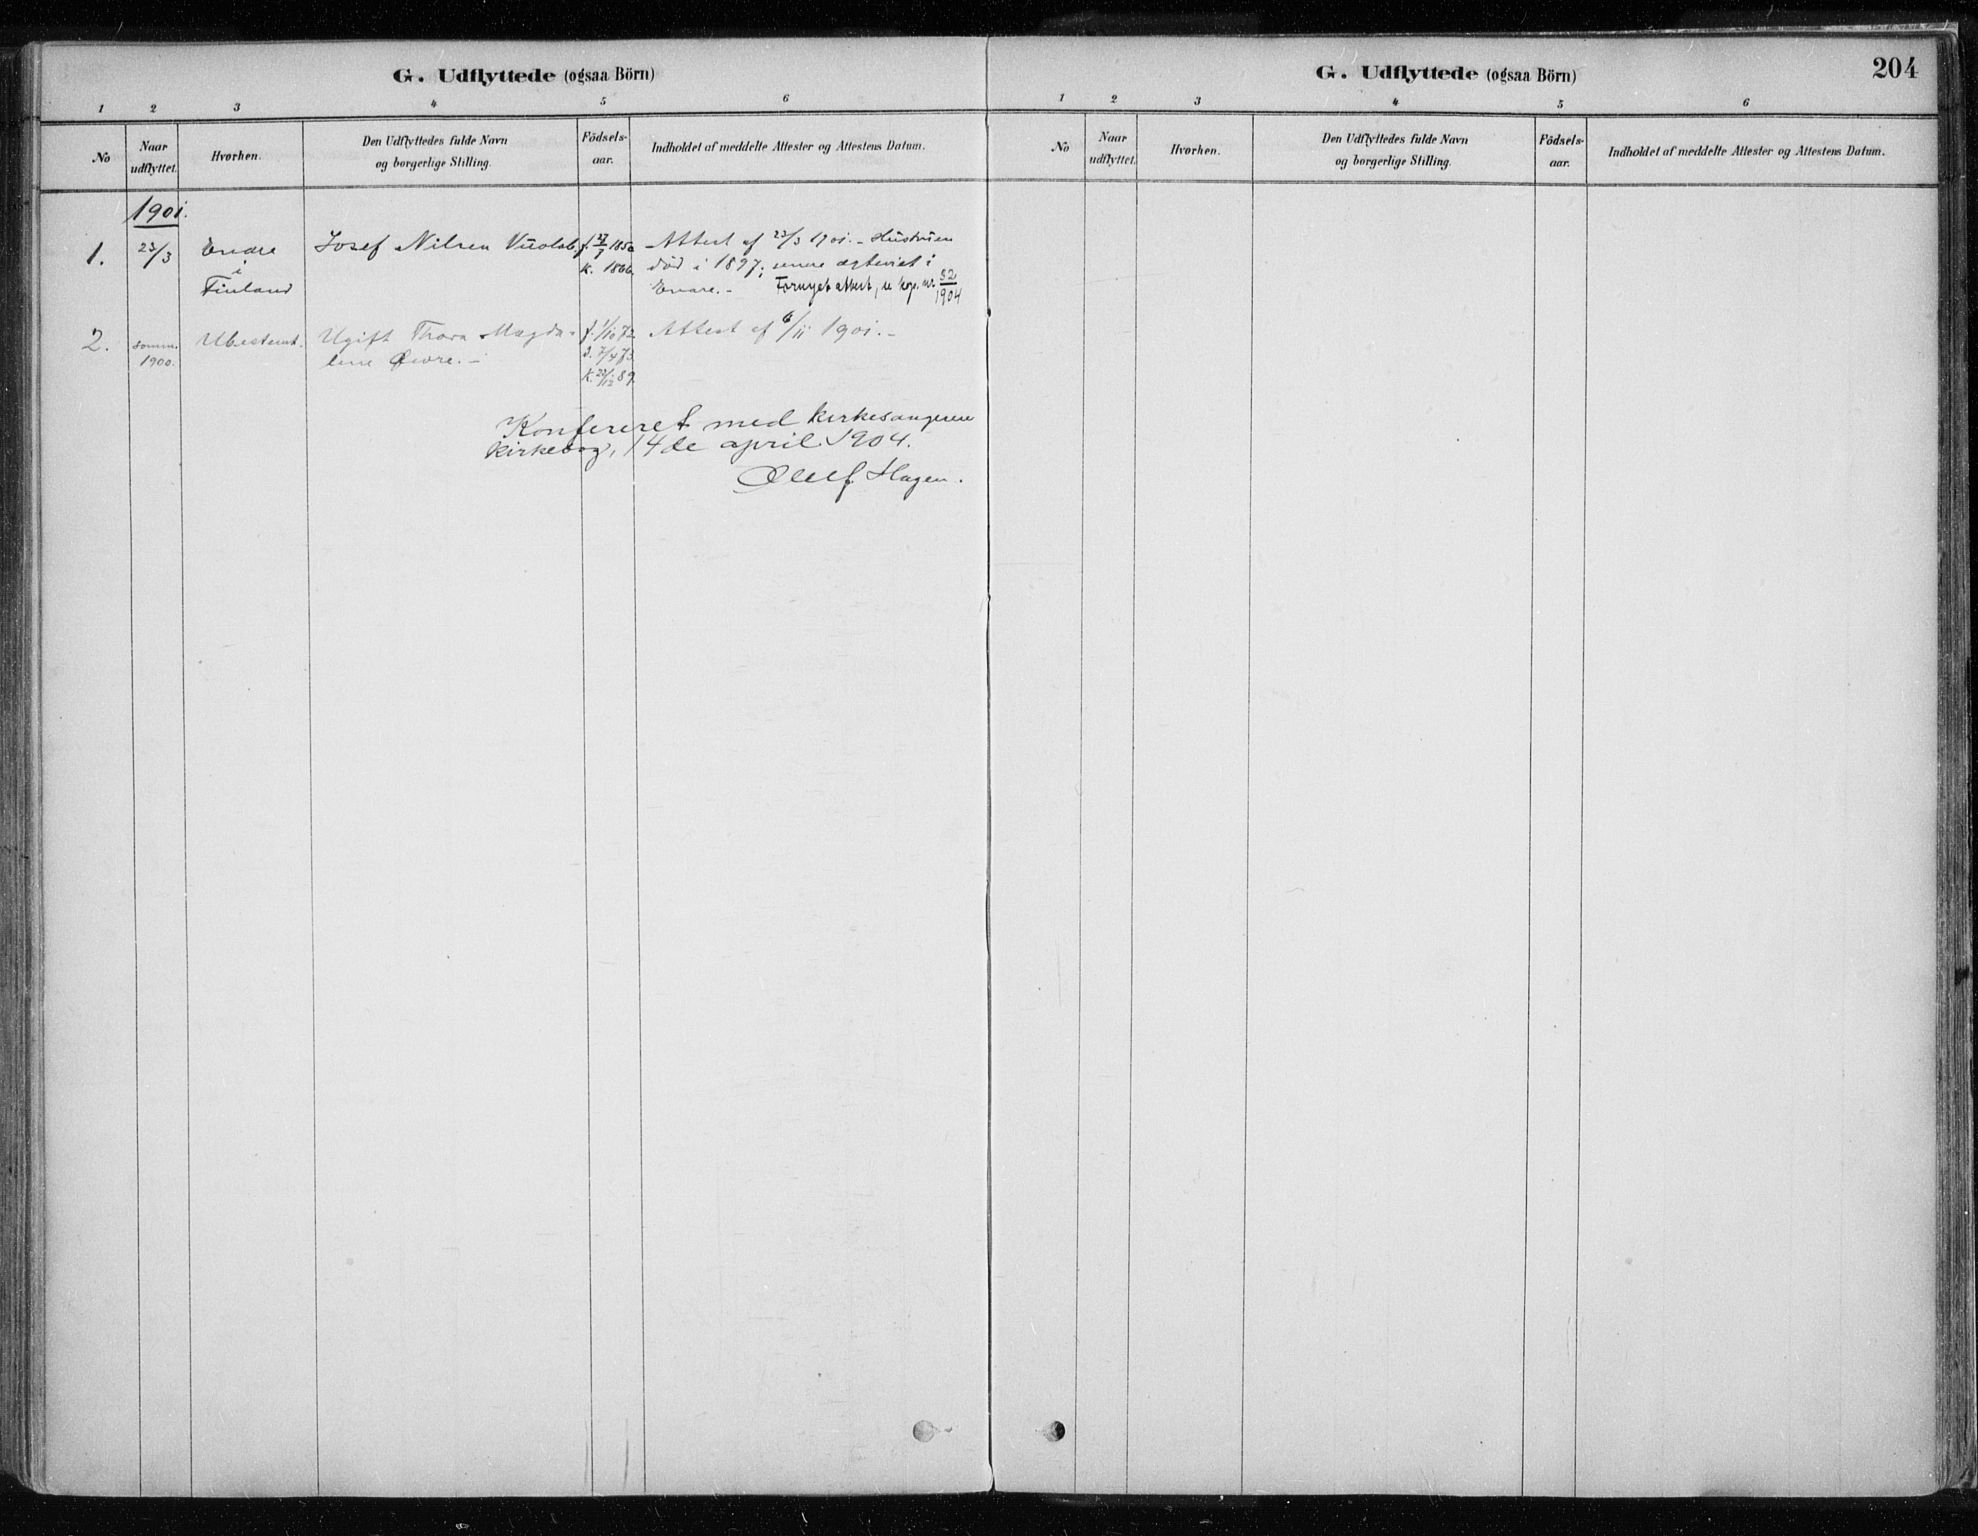 G. Udflyttede (ogsaa Börn)
1 2 3 4 5 6
No
Naar udflyttet.
Hvorhen.
Den Udflyttedes fulde Navn og borgerlige Stilling.
Födsels-aar.
Indholdet af meddelte Attester og Attestens Datum.
1901.
1. 23/3 Enare Josef Nilsen f. 27/7 1850 Attest af 23/3 1901. – Hustruen
i k. 1866. død i 1897; senere ægteviet i
Finland Enare. – Fornyet attest, se kop. nr. 82/1904
2. somm. Ubestemt. Ugift Thora Magda- f. 1/10 72 Attest af 6/11 1901. –
1900. lene Øwre. – d. 7/4 73
k. 22/12 89.
Konfereret med kirkesangerens
kirkebog, 14de april 1904.
Oluf Hagen.
G. Udflyttede (ogsaa Börn)
204
1 2 3 4 5 6
No
Naar udflyttet.
Hvorhen.
Den Udflyttedes fulde Navn og borgerlige Stilling.
Födsels-aar.
Indholdet af meddelte Attester og Attestens Datum.